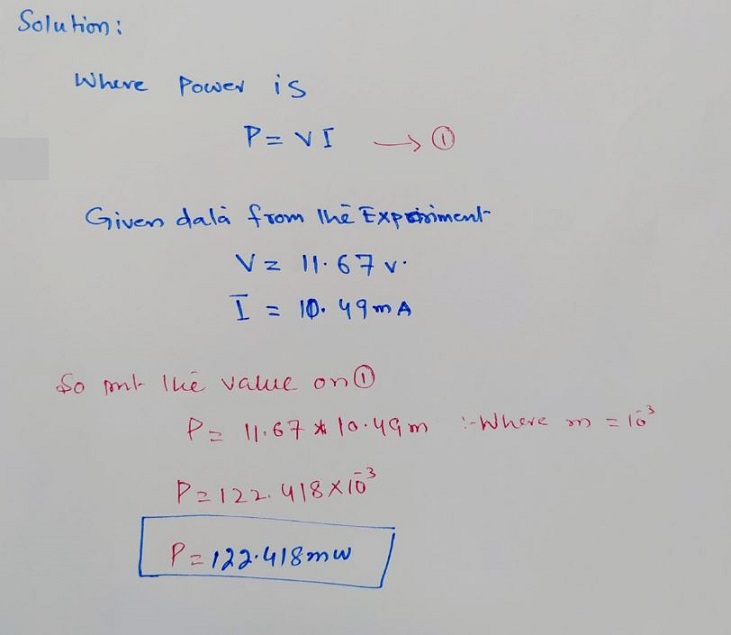 Solution:
Where Power is
P = VI → ①
Given data from the Experiment
V = 11.67 v.
I = 10.49 mA
So put the value on ①
P = 11.67 * 10.49 m :- Where m = 10⁻³
P = 122.418 × 10⁻³
P = 122.418 mw